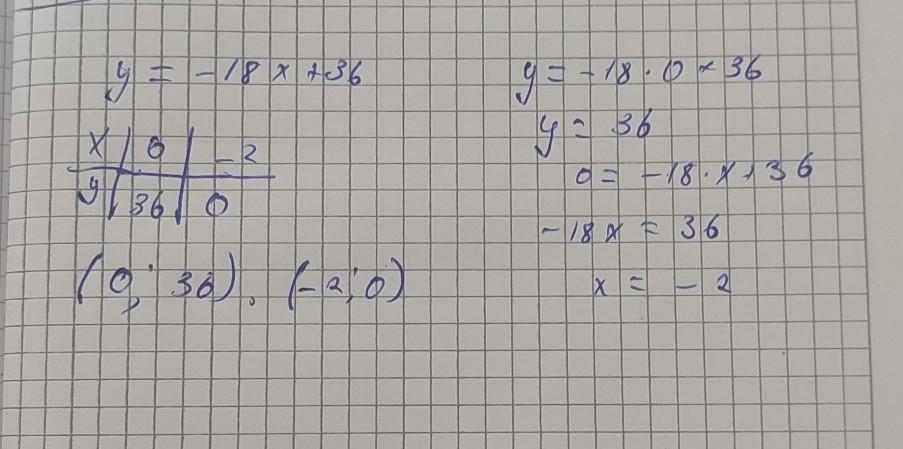 y = -18x+36
x | 0 | -2
y | 36 | 0
(0; 36). (-2; 0)
y = -18 · 0 + 36
y = 36
0 = -18 · x + 36
-18x = 36
x = -2